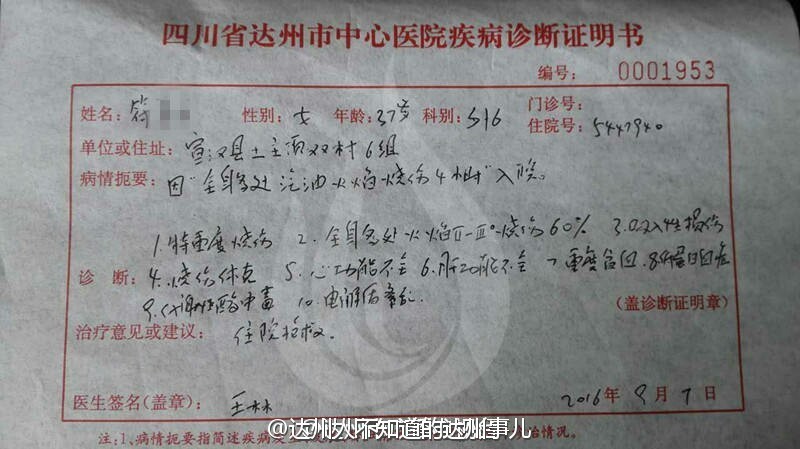 四川省达州市中心医院疾病诊断证明书
编号: 0001953
姓名: 符 性别: 女 年龄: 37岁 科别: 516 门诊号:
住院号: 5447940
单位或住址: 宣汉县土主页双村6组
病情扼要: 因"全身多处汽油火焰烧伤4小时"入院。
1.特重度烧伤 2.全身多处火焰Ⅱ-Ⅲ°烧伤60% 3.吸入性损伤
诊断: 4.烧伤休克 5.心功能不全 6.肝功能不全 7.重度贫血 8.低蛋白血症
9.代谢性酸中毒 10.电解质紊乱.
(盖诊断证明章)
治疗意见或建议: 住院抢救。
医生签名(盖章): 王林 2016年9月7日
@达州人不知道的达州事儿
注:1、病情扼要指简述疾病 治情况。